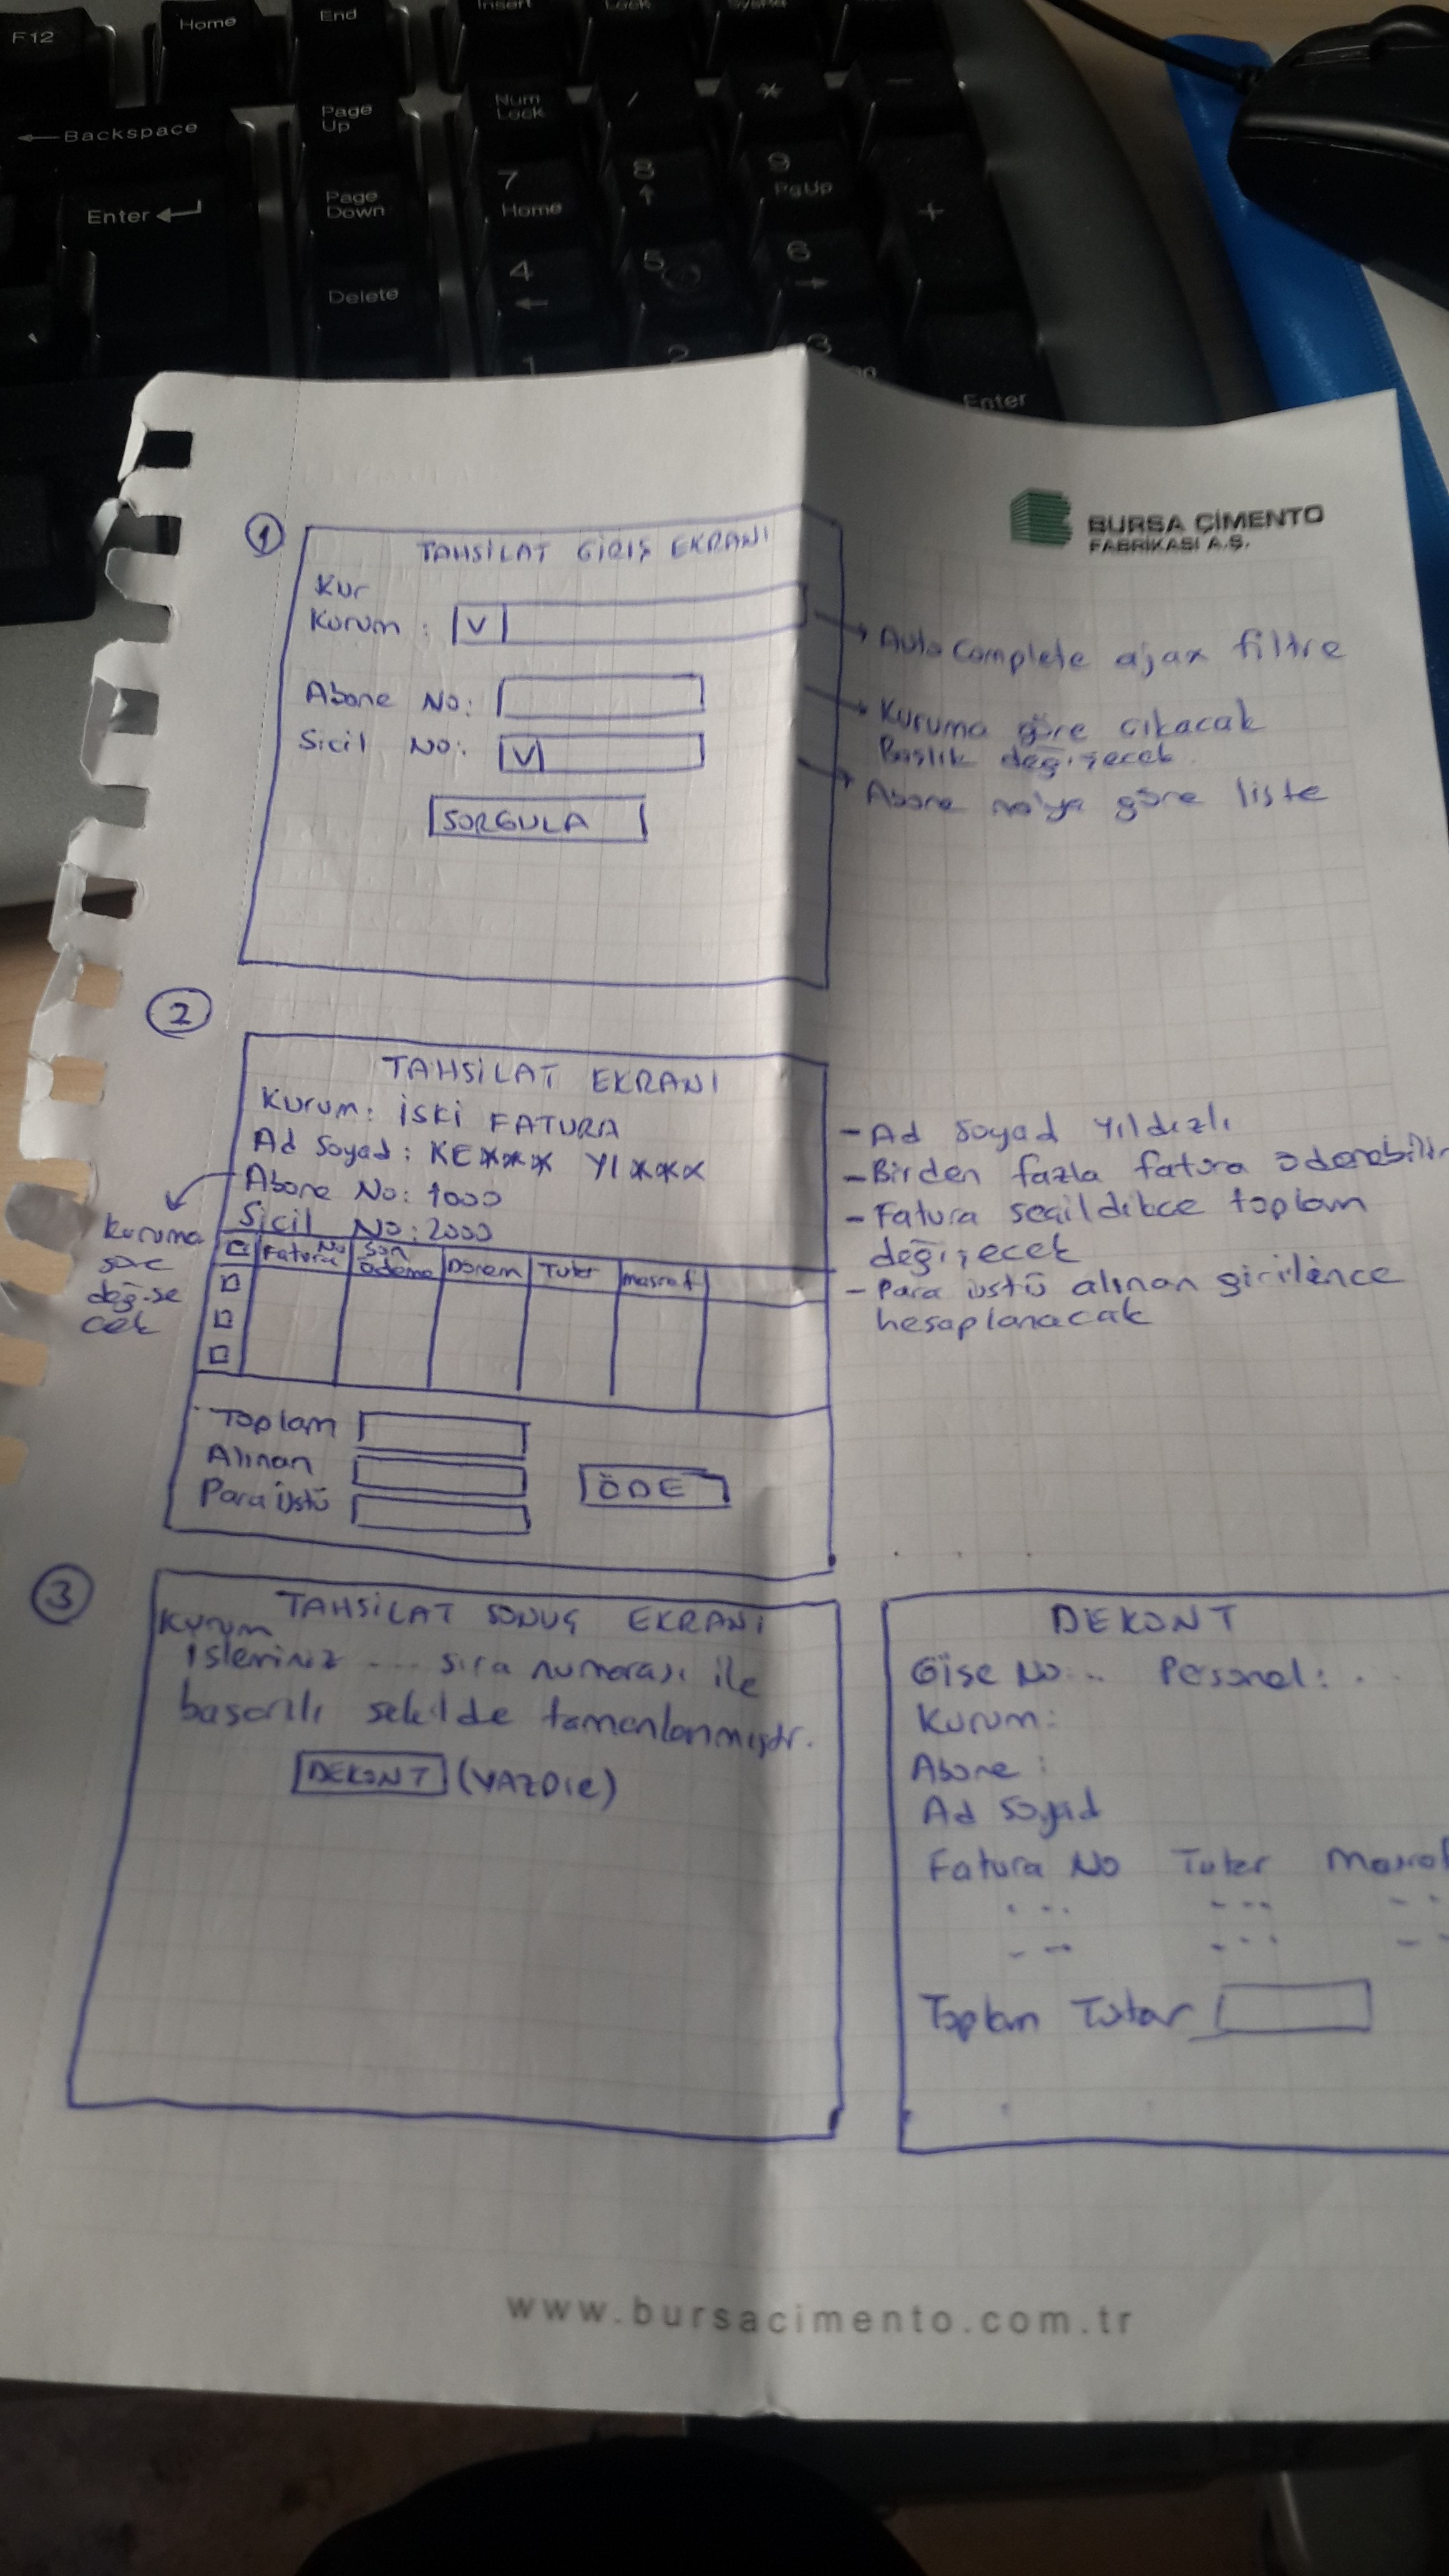 F12
Home
End
Insert
Lock
Backspace
Page
Up
Num
Lock
/
*
-
Enter
Page
Down
7
Home
8
9
PgUp
+
Delete
4
5
6
1
2
3
Enter
BURSA ÇİMENTO
FABRİKASI A.Ş.
1
TAHSİLAT GİRİŞ EKRANI
Kur
Kurum : V
Auto complete ajax filtre
Abone No:
Kuruma göre çıkacak
Başlık değişecek.
Sicil No: V
Abone no'ya göre liste
SORGULA
2
TAHSİLAT EKRANI
Kurum: İSKİ FATURA
Ad Soyad: KE*** YI***
Abone No: 1000
Sicil No: 2000
kuruma
göre
değişe
cek
Fatura No
Son ödeme
Dönem
Tutar
masraf
- Ad Soyad yıldızlı
- Birden fazla fatura ödenebilir
- Fatura seçildikce toplam
değişecek
- Para üstü alınan girilince
hesaplanacak
Toplam
Alınan
Para Üstü
ÖDE
3
TAHSİLAT SONUÇ EKRANI
Kurum
isleminiz ... sıra numarası ile
basarılı sekilde tamamlanmıştır.
DEKONT (YAZDIR)
DEKONT
Gişe No... Personel: . .
Kurum:
Abone :
Ad Soyad
Fatura No Tutar Masraf
Toplam Tutar
www.bursacimento.com.tr